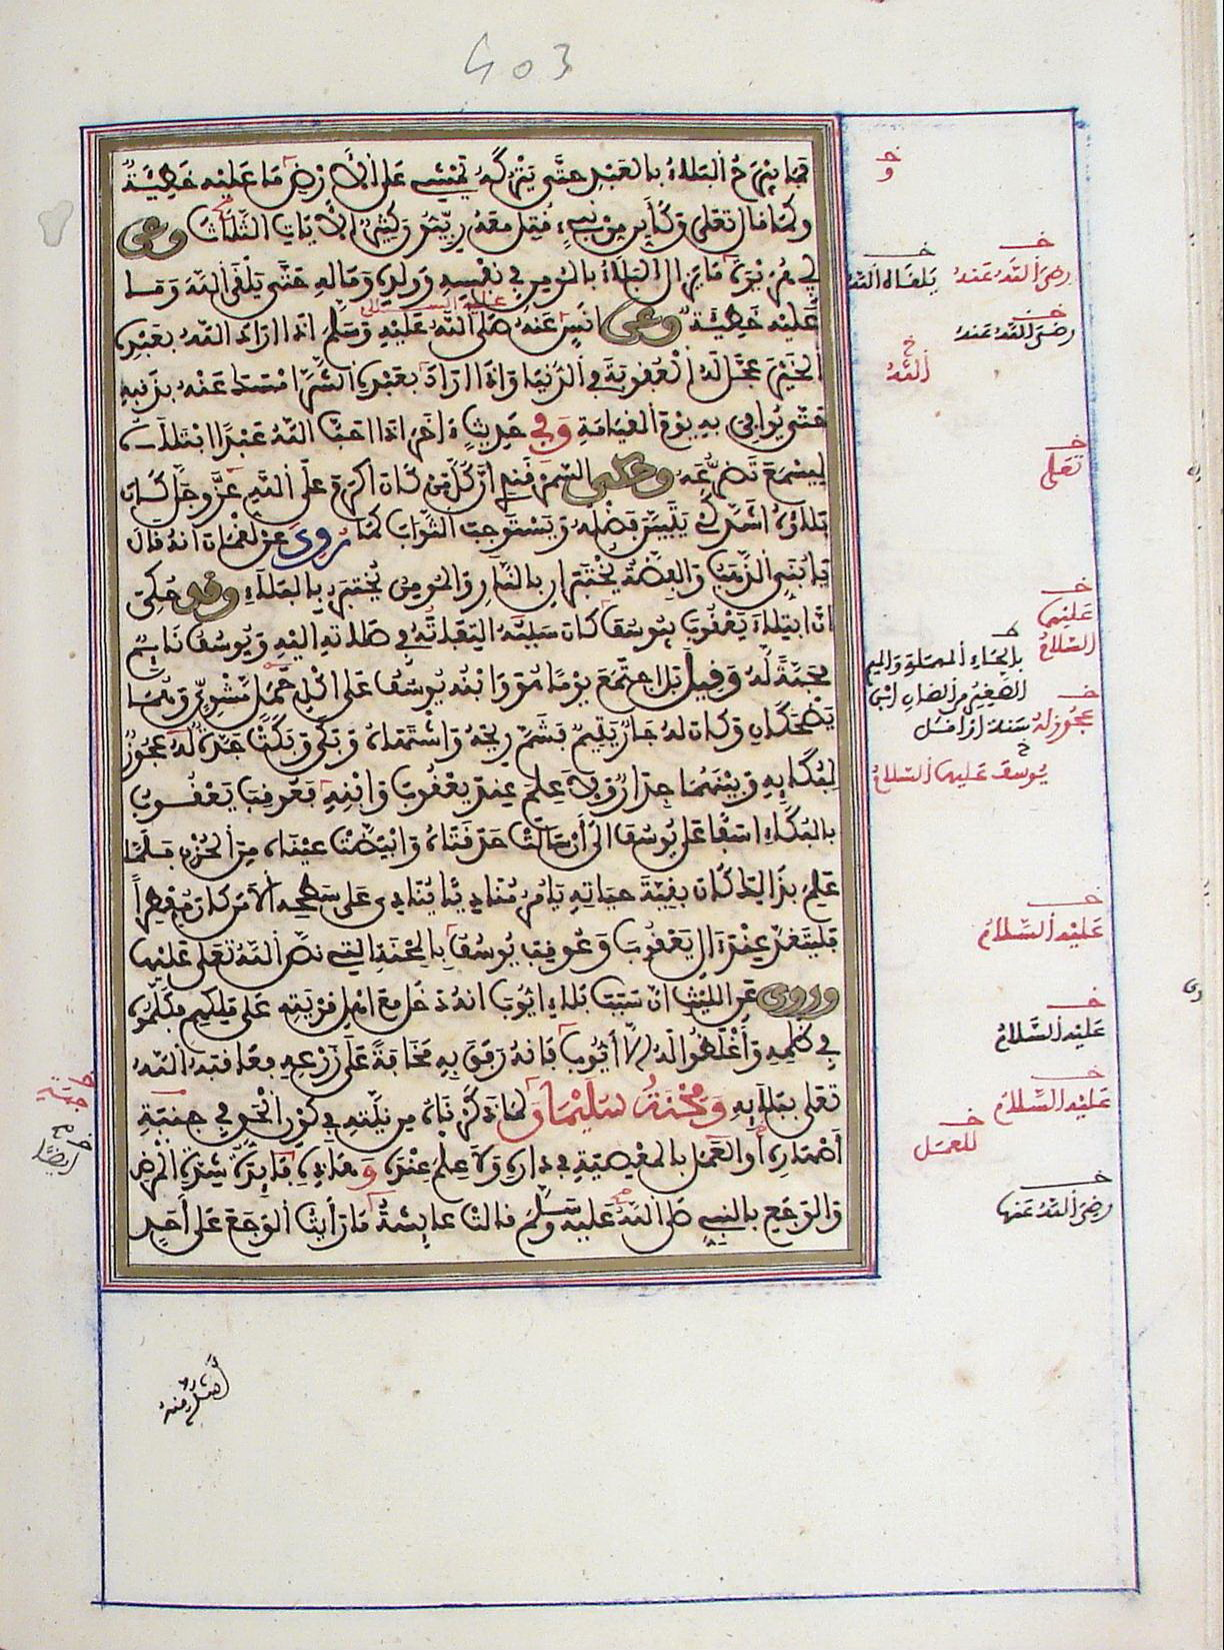 403
فما يبرح البلاء بالعبد حتى يتركه يمشي على الأرض ما عليه خطيئة
وكما قال تعلى وكأين من نبيء قتل معه ربيون كثير الآيات الثلاث وعن
أبي هريرة ما يزال البلاء بالمومن في نفسه وولده وماله حتى يلقى الله وما
عليه خطيئة وعن أنس عنه صلى الله عليه وسلم اذا اراد الله بعبده
الخير عجل له العقوبة في الدنيا واذا اراد بعبده الشر امسك عنه بذنبه
حتى يوافي به يوم القيامة وفي حديث ءاخر اذا احب الله عبدا ابتلاه
ليسمع تضرعه وحكى السمرقندي ان كل من كان اكرم على الله عز وجل كان
بلاؤه اشد كي يتبين فضله ويستوجب الثواب كما روي عن لقمان انه قال
يا بني الذهب والفضة يختبران بالنار والمومن يختبر بالبلاء وقد حكي
ان ابتلاء يعقوب بيوسف كان سببه التفاته في صلاته اليه ويوسف نائم
محبة له وقيل بل اجتمع يوما هو وابنه يوسف على اكل حمل مشوي وهما
يضحكان وكان لهم جار يتيم فشم ريحه واشتهاه وبكى وبكت جدة له عجوز
لبكائه وبينهما جدار ولا علم عند يعقوب وابنه فعوقب يعقوب
بالبكاء اسفا على يوسف الى أن سالت حدقتاه وابيضت عيناه من الحزن فلما
علم بذالك كان بقية حياته يامر مناديا ينادي على سطحه الا من كان مفطرا
فليتغد عند ءال يعقوب وعوقب يوسف بالمحنة التي نص الله تعلى عليها
وروي عن الليث ان سبب بلاء ايوب انه دخل مع اهل قريته على ملكهم فكلموه
في ظلمه وأغلظوا له الا أيوب فانه رفق به مخافة على زرعه فعاقبه الله
تعلى ببلائه ومحنة سليمان لما ذكرناه من نيته في كون الحق في جنبة
أصهاره أو العمل بالمعصية في داره ولا علم عنده وهذه فائدة شدة المرض
والوجع بالنبي صلى الله عليه وسلم قالت عائشة ما رأيت الوجع على أحد
رضي الله عنه
يلقاه الله
رضي الله عنه
الله
تعلى
عليهما
السلام
بالحاء المهملة والميم
الصغير من الضان ابن
سنة او اقل
عجوز له
يوسف عليهما السلام
عليه السلام
عليه السلام
عليه السلام
للعمل
رضي الله عنها
أشد منه